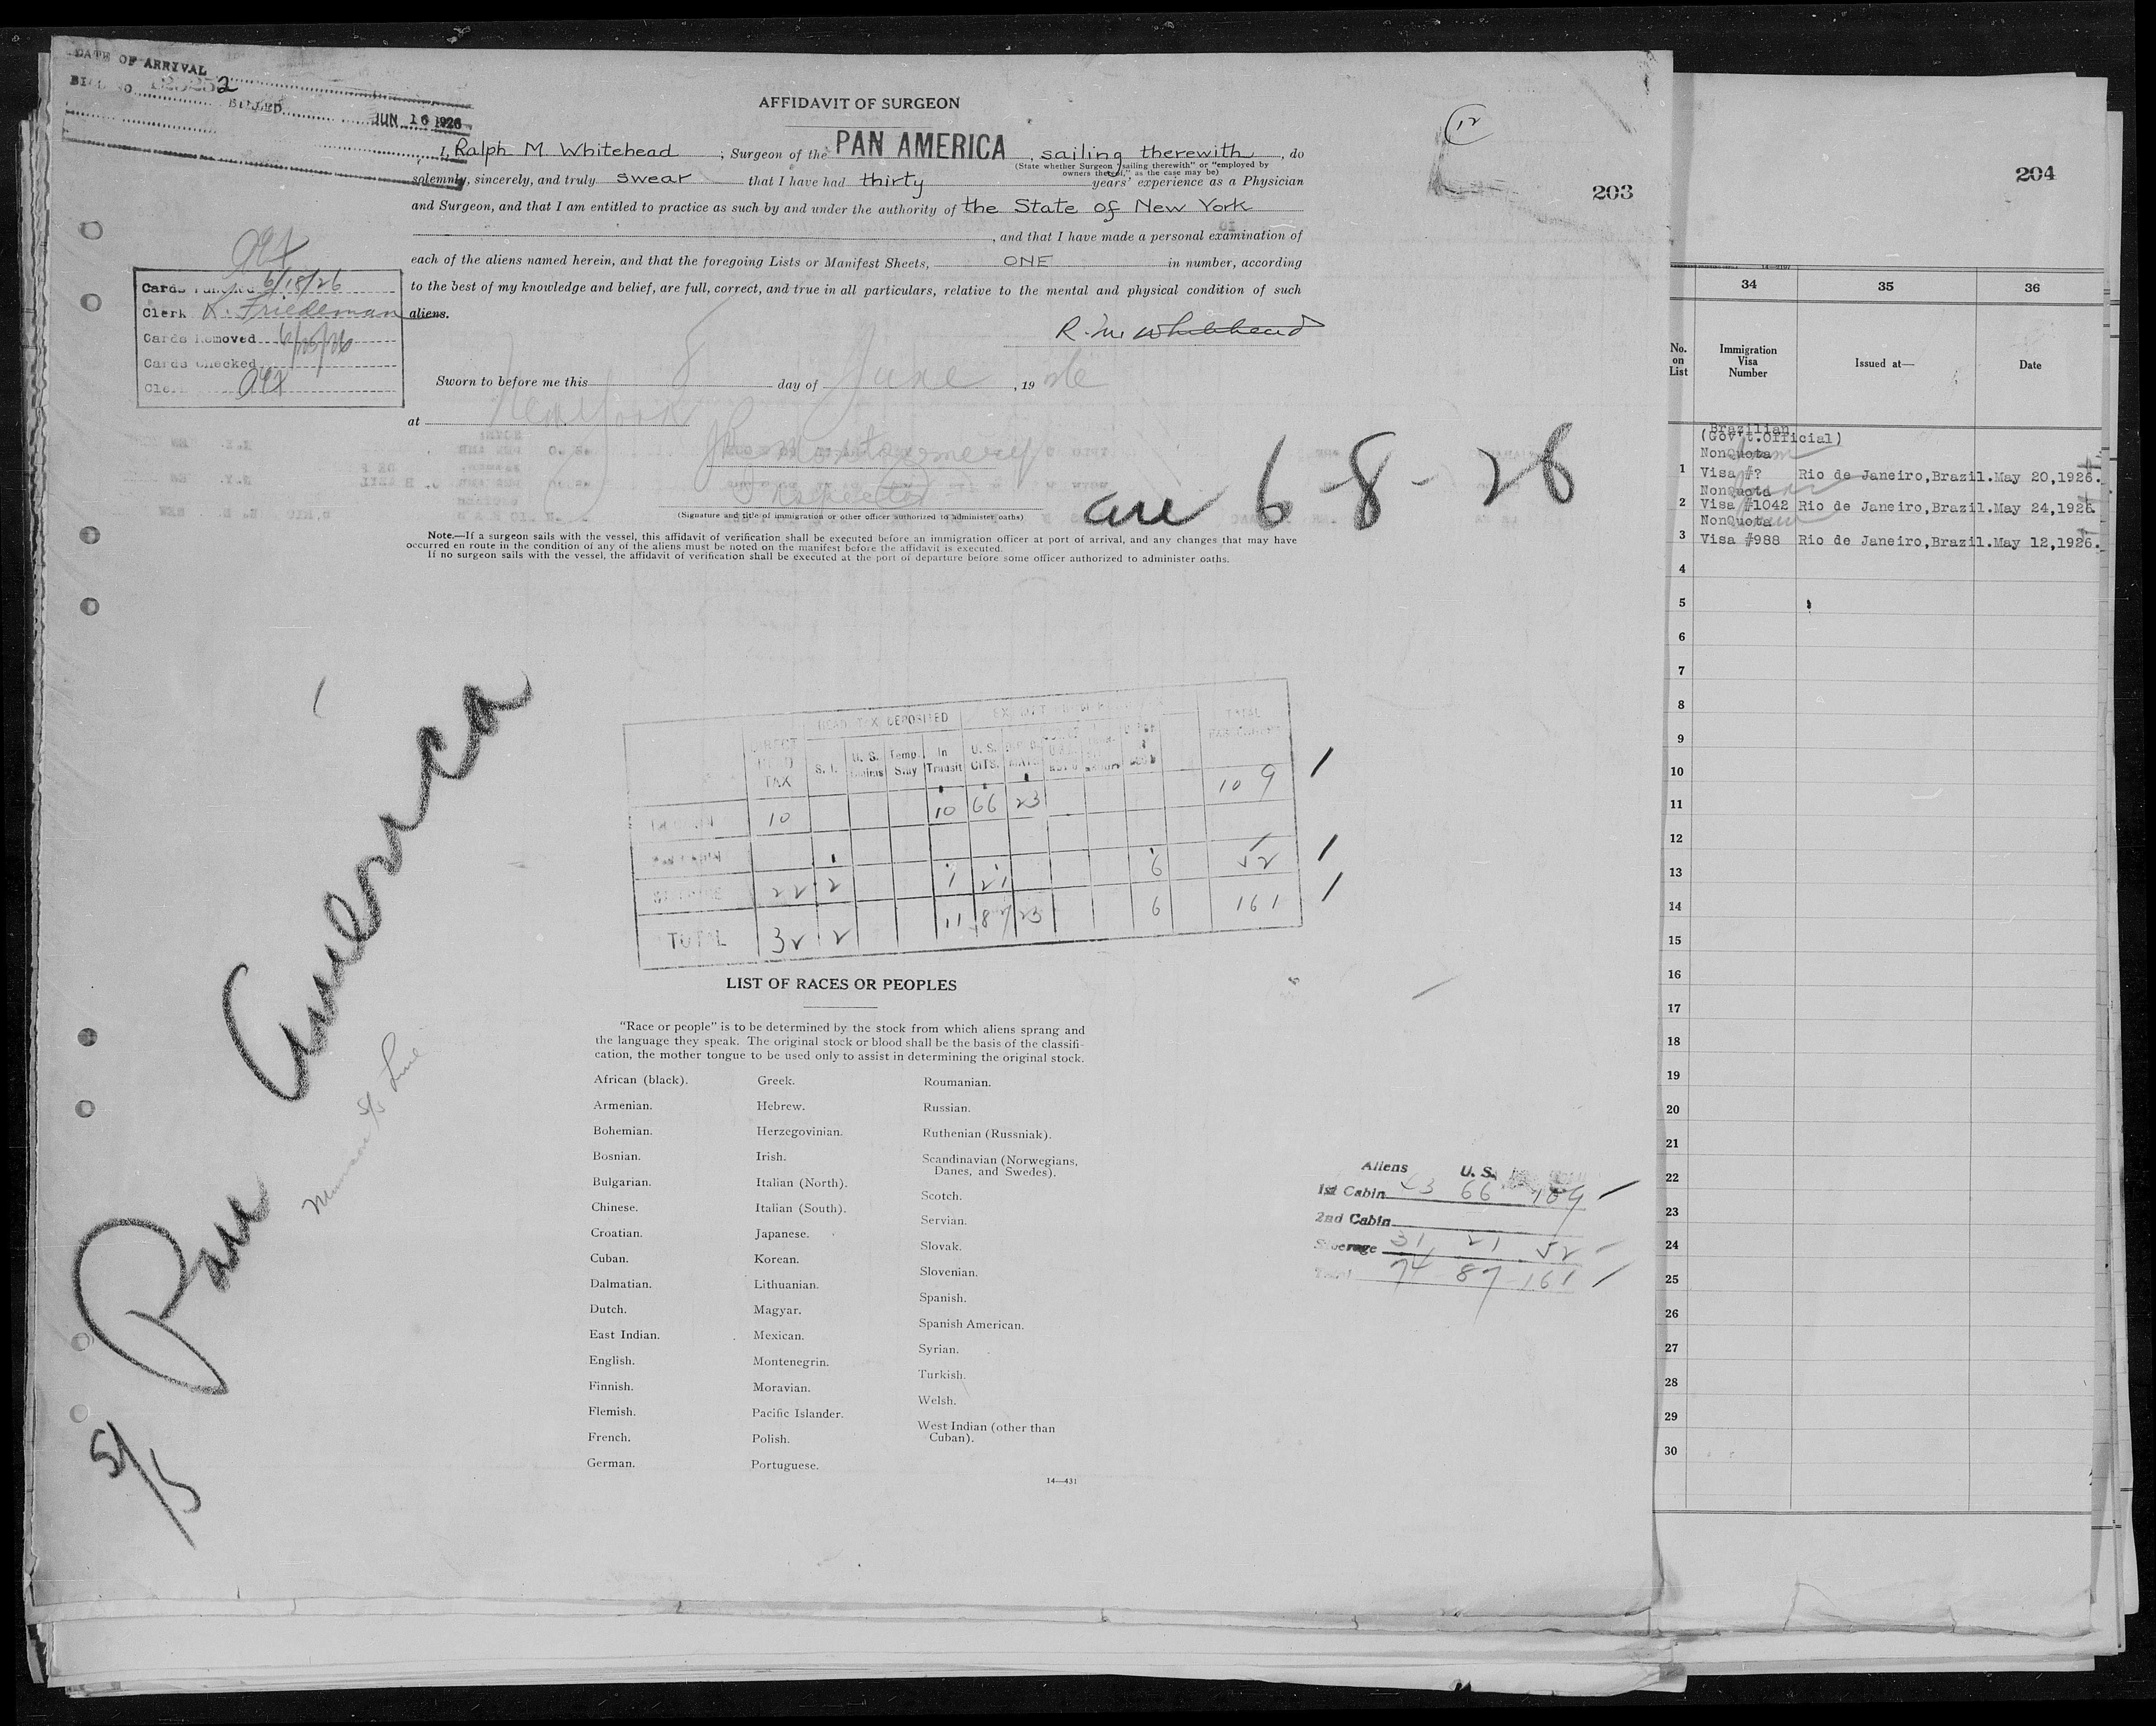 DATE OF ARRIVAL
BILLED
JUN 16 1926
AFFIDAVIT OF SURGEON
12
I, Ralph M Whitehead, Surgeon of the PAN AMERICA, sailing therewith, do
(State whether Surgeon "sailing therewith" or "employed by
owners thereof," as the case may be)
solemnly, sincerely, and truly swear that I have had thirty years' experience as a Physician
and Surgeon, and that I am entitled to practice as such by and under the authority of the State of New York
, and that I have made a personal examination of
each of the aliens named herein, and that the foregoing Lists or Manifest Sheets, ONE in number, according
to the best of my knowledge and belief, are full, correct, and true in all particulars, relative to the mental and physical condition of such
aliens.
R. M. Whitehead
203
Cards Punched 6/18/26
Clerk K. Friedeman
Cards Removed
Cards Checked
Clerk
Sworn to before me this 8 day of June, 1926
at New York
Montgomery
Inspector
(Signature and title of immigration or other officer authorized to administer oaths)
arr 6-8-26
Note.—If a surgeon sails with the vessel, this affidavit of verification shall be executed before an immigration officer at port of arrival, and any changes that may have
occurred en route in the condition of any of the aliens must be noted on the manifest before the affidavit is executed.
If no surgeon sails with the vessel, the affidavit of verification shall be executed at the port of departure before some officer authorized to administer oaths.
HEAD TAX DEPOSITED
DIRECT HEAD TAX S. I. U. S. Temp. Stay In Transit U. S. CITS. TOTAL
10 10 66 23 109
22 2 1 21 6 52
TOTAL 32 2 11 87 23 6 161
S/S Pan America
Munson S/S Line
LIST OF RACES OR PEOPLES
"Race or people" is to be determined by the stock from which aliens sprang and
the language they speak. The original stock or blood shall be the basis of the classifi-
cation, the mother tongue to be used only to assist in determining the original stock.
African (black).
Armenian.
Bohemian.
Bosnian.
Bulgarian.
Chinese.
Croatian.
Cuban.
Dalmatian.
Dutch.
East Indian.
English.
Finnish.
Flemish.
French.
German.
Greek.
Hebrew.
Herzegovinian.
Irish.
Italian (North).
Italian (South).
Japanese.
Korean.
Lithuanian.
Magyar.
Mexican.
Montenegrin.
Moravian.
Pacific Islander.
Polish.
Portuguese.
Roumanian.
Russian.
Ruthenian (Russniak).
Scandinavian (Norwegians,
Danes, and Swedes).
Scotch.
Servian.
Slovak.
Slovenian.
Spanish.
Spanish American.
Syrian.
Turkish.
Welsh.
West Indian (other than
Cuban).
14—431
Aliens U. S.
1st Cabin 43 66 109
2nd Cabin
Steerage 31 21 52
Total 74 87 161
204
34 35 36
No.
on
List
Immigration
Visa
Number
Issued at—
Date
Brazilian
(Gov't.Official)
NonQuota
1 Visa #? Rio de Janeiro,Brazil. May 20,1926.
NonQuota
2 Visa #1042 Rio de Janeiro,Brazil. May 24,1926.
NonQuota
3 Visa #988 Rio de Janeiro,Brazil. May 12,1926.
4
5
6
7
8
9
10
11
12
13
14
15
16
17
18
19
20
21
22
23
24
25
26
27
28
29
30